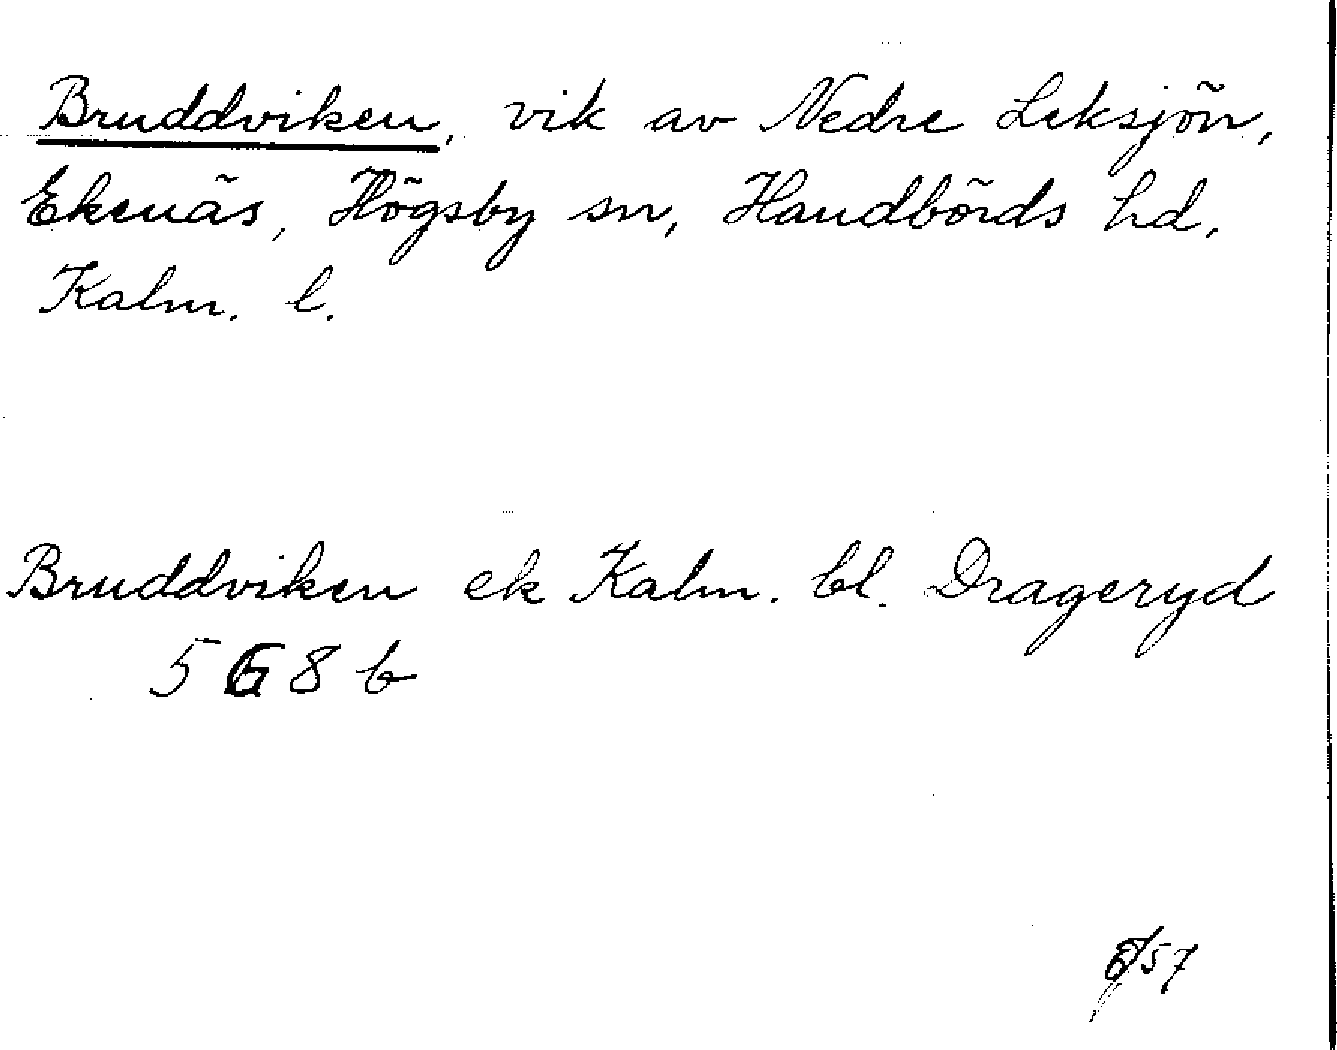 Bruddviken, vik av Nedre Leksjön,
Ekenäs, Högsby sn, Handbörds hd,
Kalm. l.
Bruddviken ek Kalm. bl. Drageryd
5 G 8 b
/57